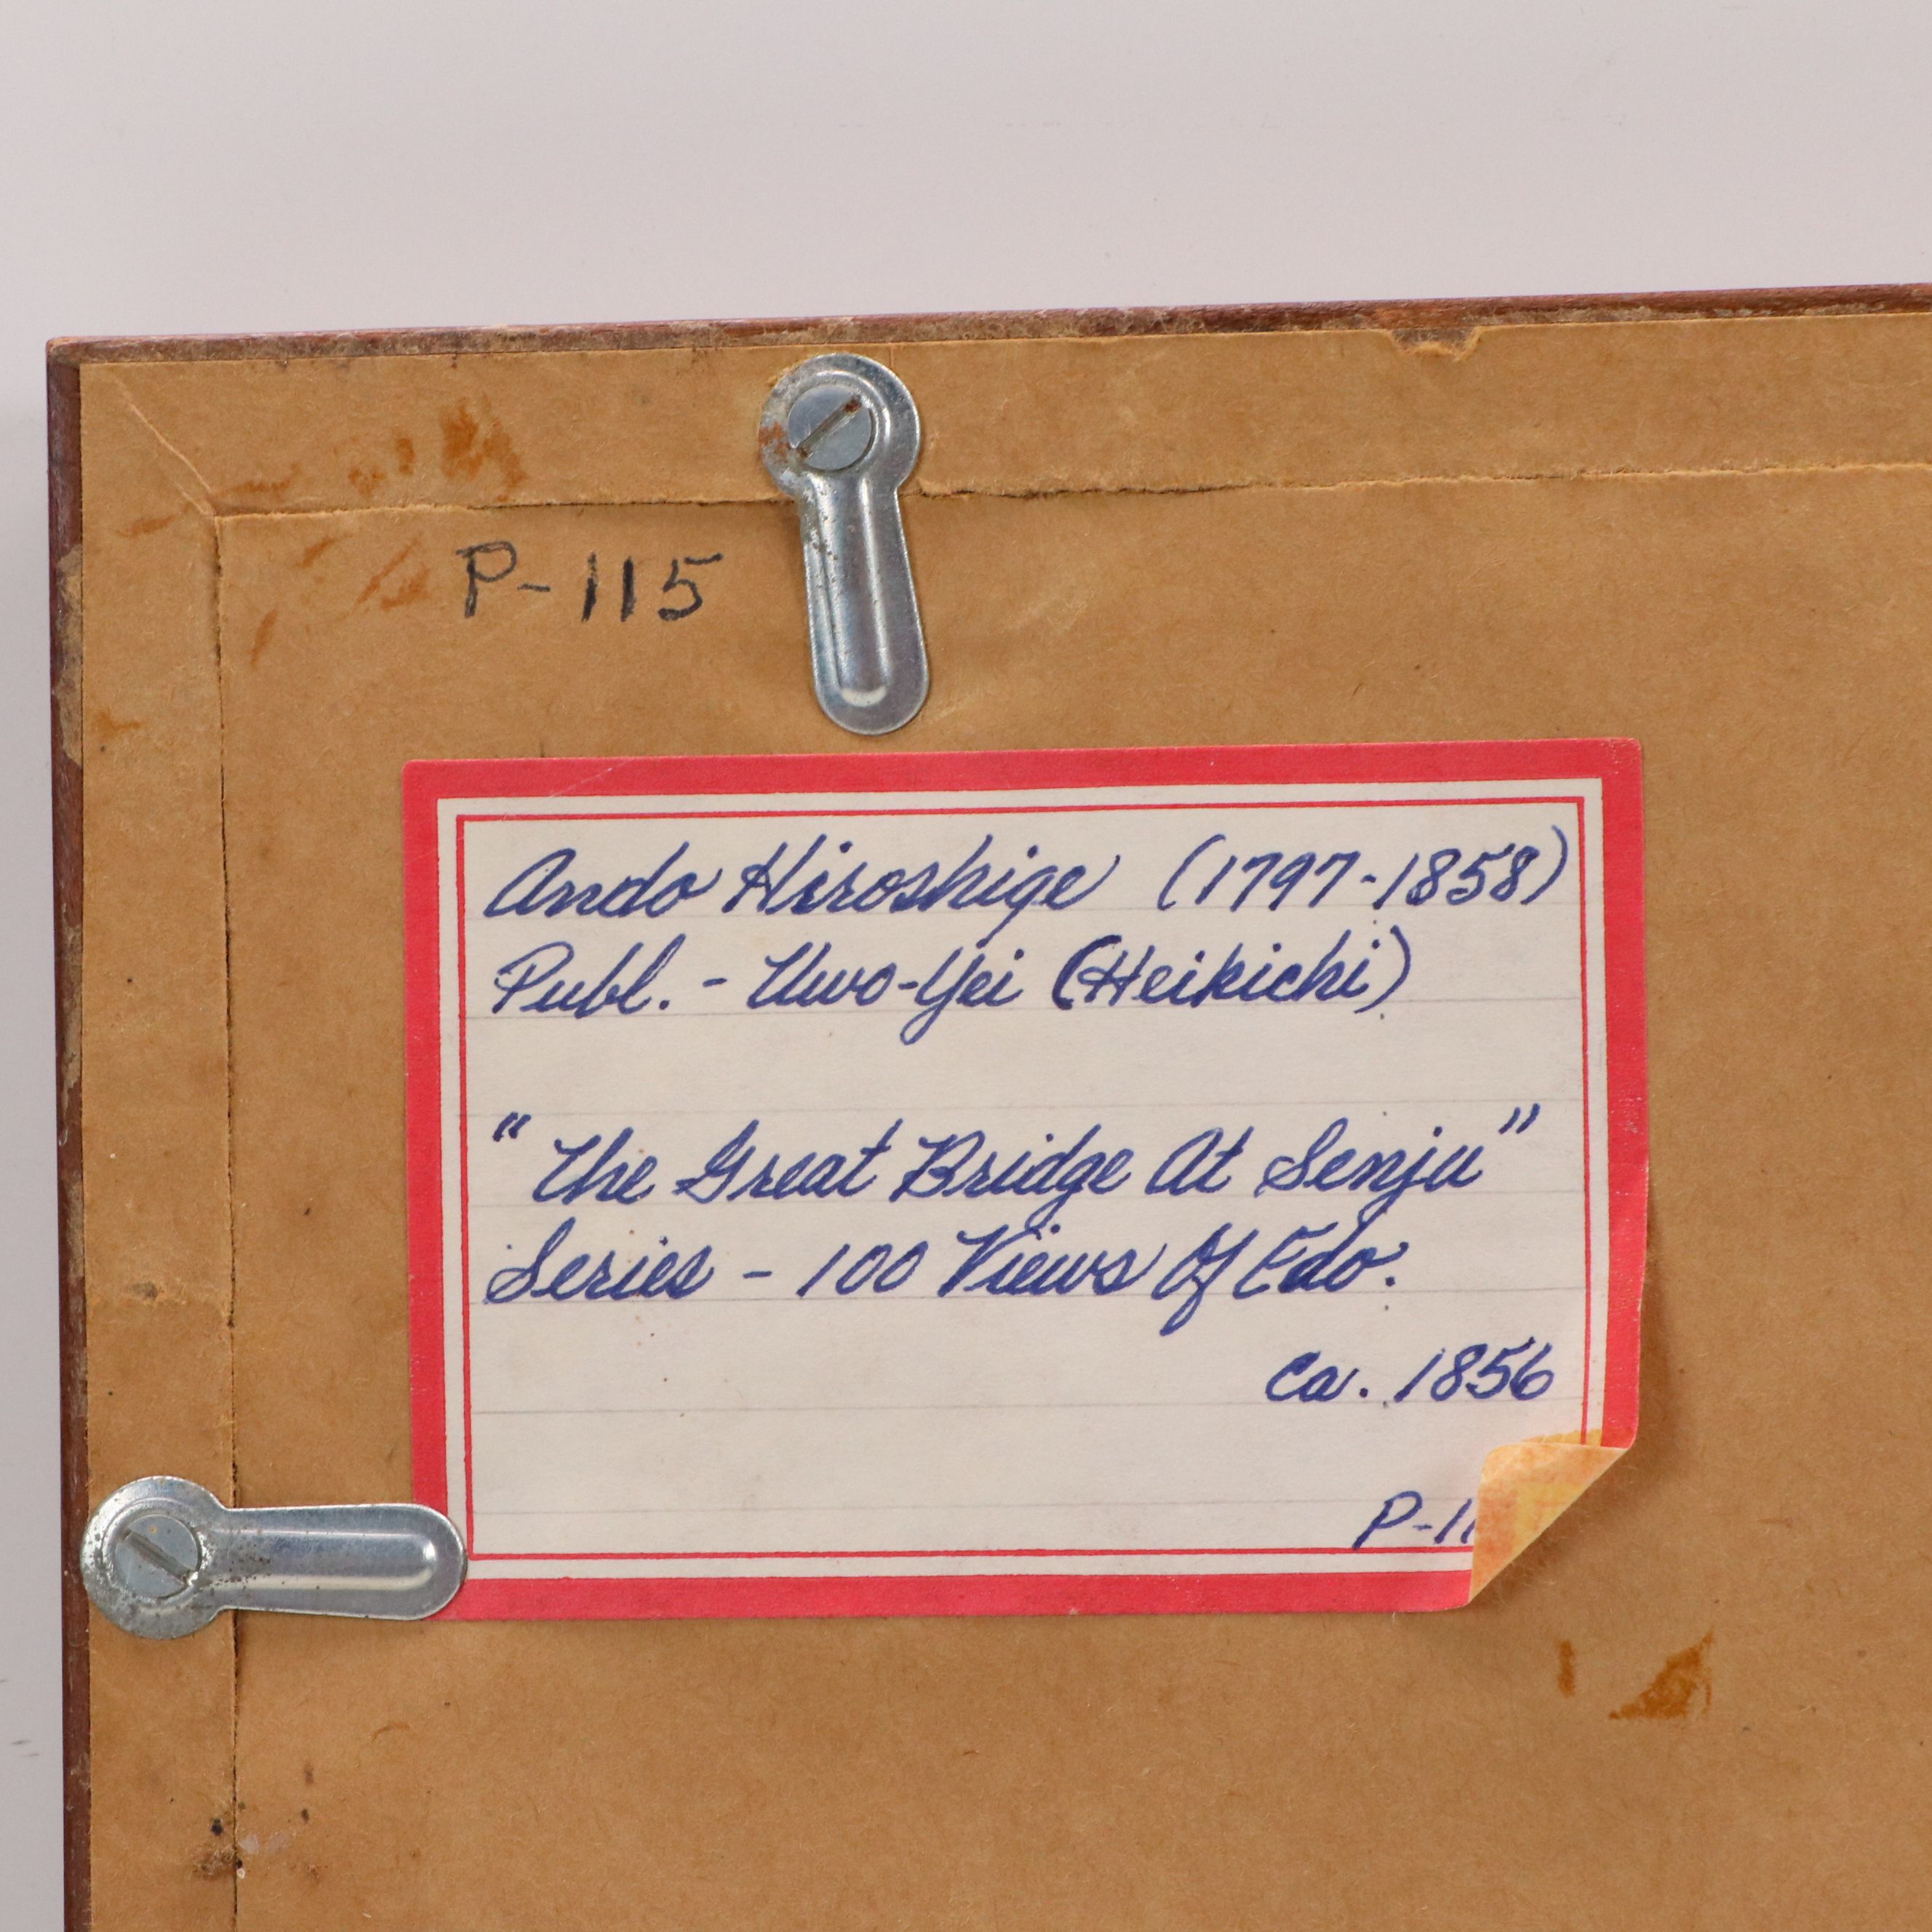 P-115
Ando Hiroshige (1797-1858)
Publ. - Uwo-Yei (Heikichi)
"The Great Bridge At Senju"
Series - 100 Views Of Edo.
ca. 1856
P-11